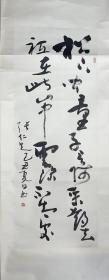 松下問童子言師采藥去
祇在此山中雲深不知處
乙丑夏日